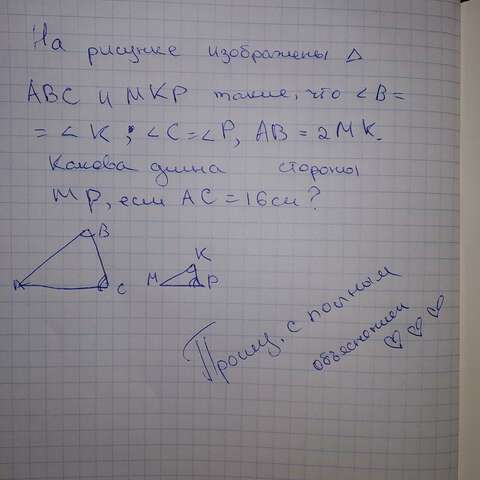 На рисунке изображены △
ABC и MKP такие, что ∠B=
=∠K; ∠C=∠P, AB=2MK.
Какова длина стороны
MP, если AC=16см?
B
K
A
C
M
P
Прошу, с полным
объяснением ♡♡♡